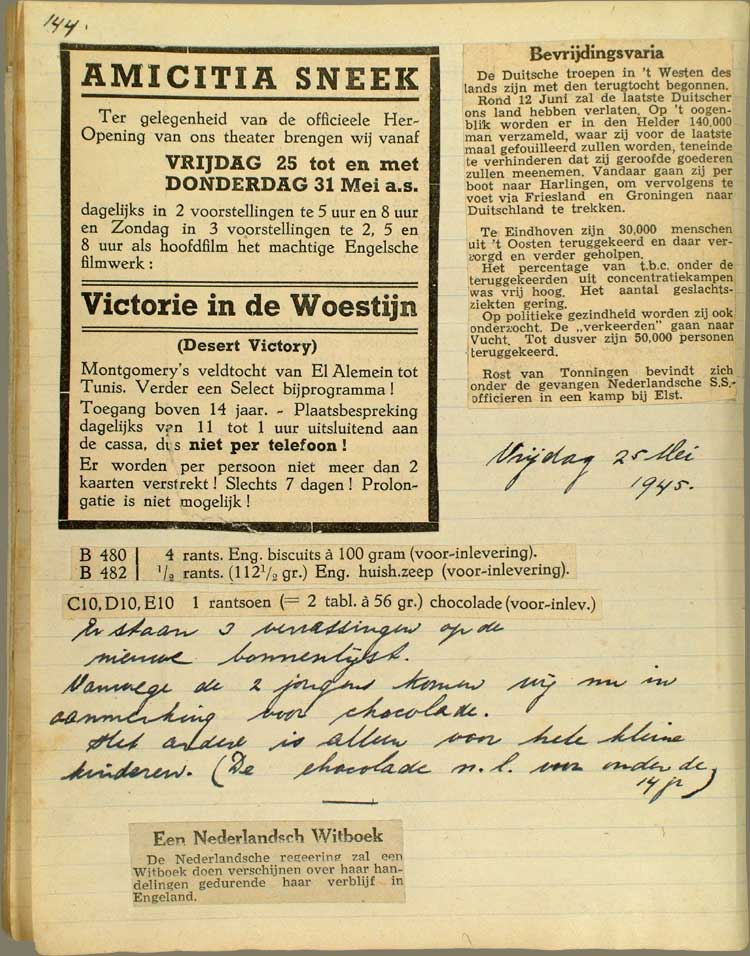 144.
AMICITIA SNEEK
Ter gelegenheid van de officieele Her-
Opening van ons theater brengen wij vanaf
VRIJDAG 25 tot en met
DONDERDAG 31 Mei a.s.
dagelijks in 2 voorstellingen te 5 uur en 8 uur
en Zondag in 3 voorstellingen te 2, 5 en
8 uur als hoofdfilm het machtige Engelsche
filmwerk :
Victorie in de Woestijn
(Desert Victory)
Montgomery's veldtocht van El Alemein tot
Tunis. Verder een Select bijprogramma !
Toegang boven 14 jaar. - Plaatsbespreking
dagelijks van 11 tot 1 uur uitsluitend aan
de cassa, dus niet per telefoon !
Er worden per persoon niet meer dan 2
kaarten verstrekt ! Slechts 7 dagen ! Prolon-
gatie is niet mogelijk !
Bevrijdingsvaria
De Duitsche troepen in 't Westen des
lands zijn met den terugtocht begonnen.
Rond 12 Juni zal de laatste Duitscher
ons land hebben verlaten. Op 't oogen-
blik worden er in den Helder 140.000
man verzameld, waar zij voor de laatste
maal gefouilleerd zullen worden, teneinde
te verhinderen dat zij geroofde goederen
zullen meenemen. Vandaar gaan zij per
boot naar Harlingen, om vervolgens te
voet via Friesland en Groningen naar
Duitschland te trekken.
Te Eindhoven zijn 30,000 menschen
uit 't Oosten teruggekeerd en daar ver-
zorgd en verder geholpen.
Het percentage van t.b.c. onder de
teruggekeerden uit concentratiekampen
was vrij hoog. Het aantal geslachts-
ziekten gering.
Op politieke gezindheid worden zij ook
onderzocht. De „verkeerden” gaan naar
Vucht. Tot dusver zijn 50,000 personen
teruggekeerd.
Rost van Tonningen bevindt zich
onder de gevangen Nederlandsche S.S.-
officieren in een kamp bij Elst.
Vrijdag 25 Mei
1945.
B 480 | 4 rants. Eng. biscuits à 100 gram (voor-inlevering).
B 482 | 1/2 rants. (112 1/2 gr.) Eng. huish.zeep (voor-inlevering).
C10, D10, E10 1 rantsoen (= 2 tabl. à 56 gr.) chocolade (voor-inlev.)
Er staan 3 verrassingen op de
nieuwe bonnenlijst.
Vanwege de 2 jongens komen wij nu in
aanmerking voor chocolade.
Het andere is alleen voor hele kleine
kinderen. (De chocolade n.l. voor onder de
14 jr)
Een Nederlandsch Witboek
De Nederlandsche regeering zal een
Witboek doen verschijnen over haar han-
delingen gedurende haar verblijf in
Engeland.